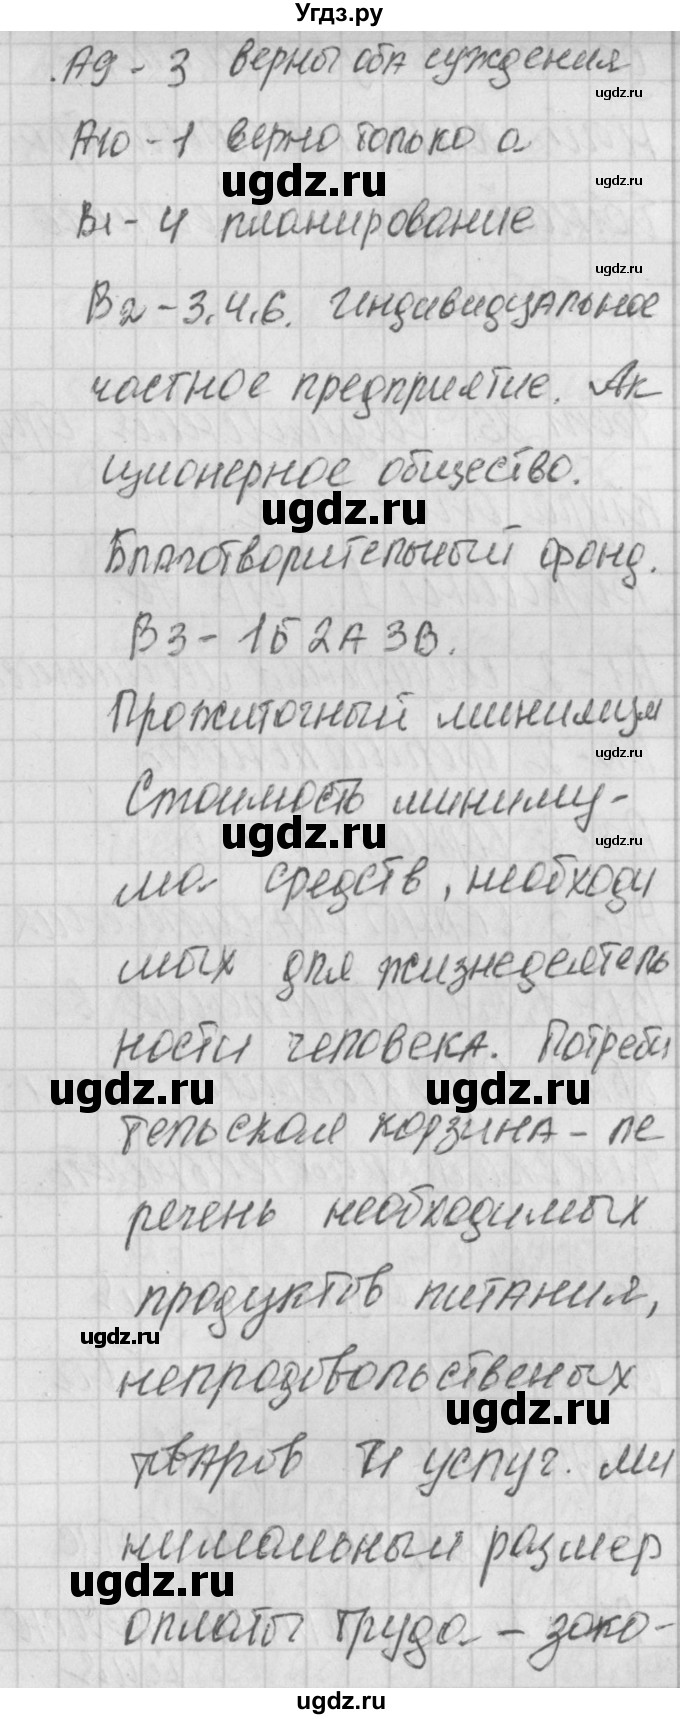 Угдз.ру
.А9 - 3 верны оба суждения
ugdz.ru
А10 - 1 верно только а
ugdz.ru
ugdz.ru
В1 - 4 планирование
ugdz.ru
В2 - 3.4.6. Индивидуальное
частное предприятие. Ак
ционерное общество.
ugdz.ru
Благотворительный фонд.
В3 - 1Б 2А 3В.
Прожиточный минимум
ugdz.ru
Стоимость миниму-
ugdz.ru
ugdz.ru
ма средств, необходи
мых для жизнедеятель
ности человека. Потреби
ugdz.ru
ugdz.ru
тельская корзина - пе
речень необходимых
продуктов питания,
ugdz.ru
непродовольственых
ugdz.ru
тваров и услуг. ми
нимальный размер
ugdz.ru
оплаты труда - зако-
ugdz.ru